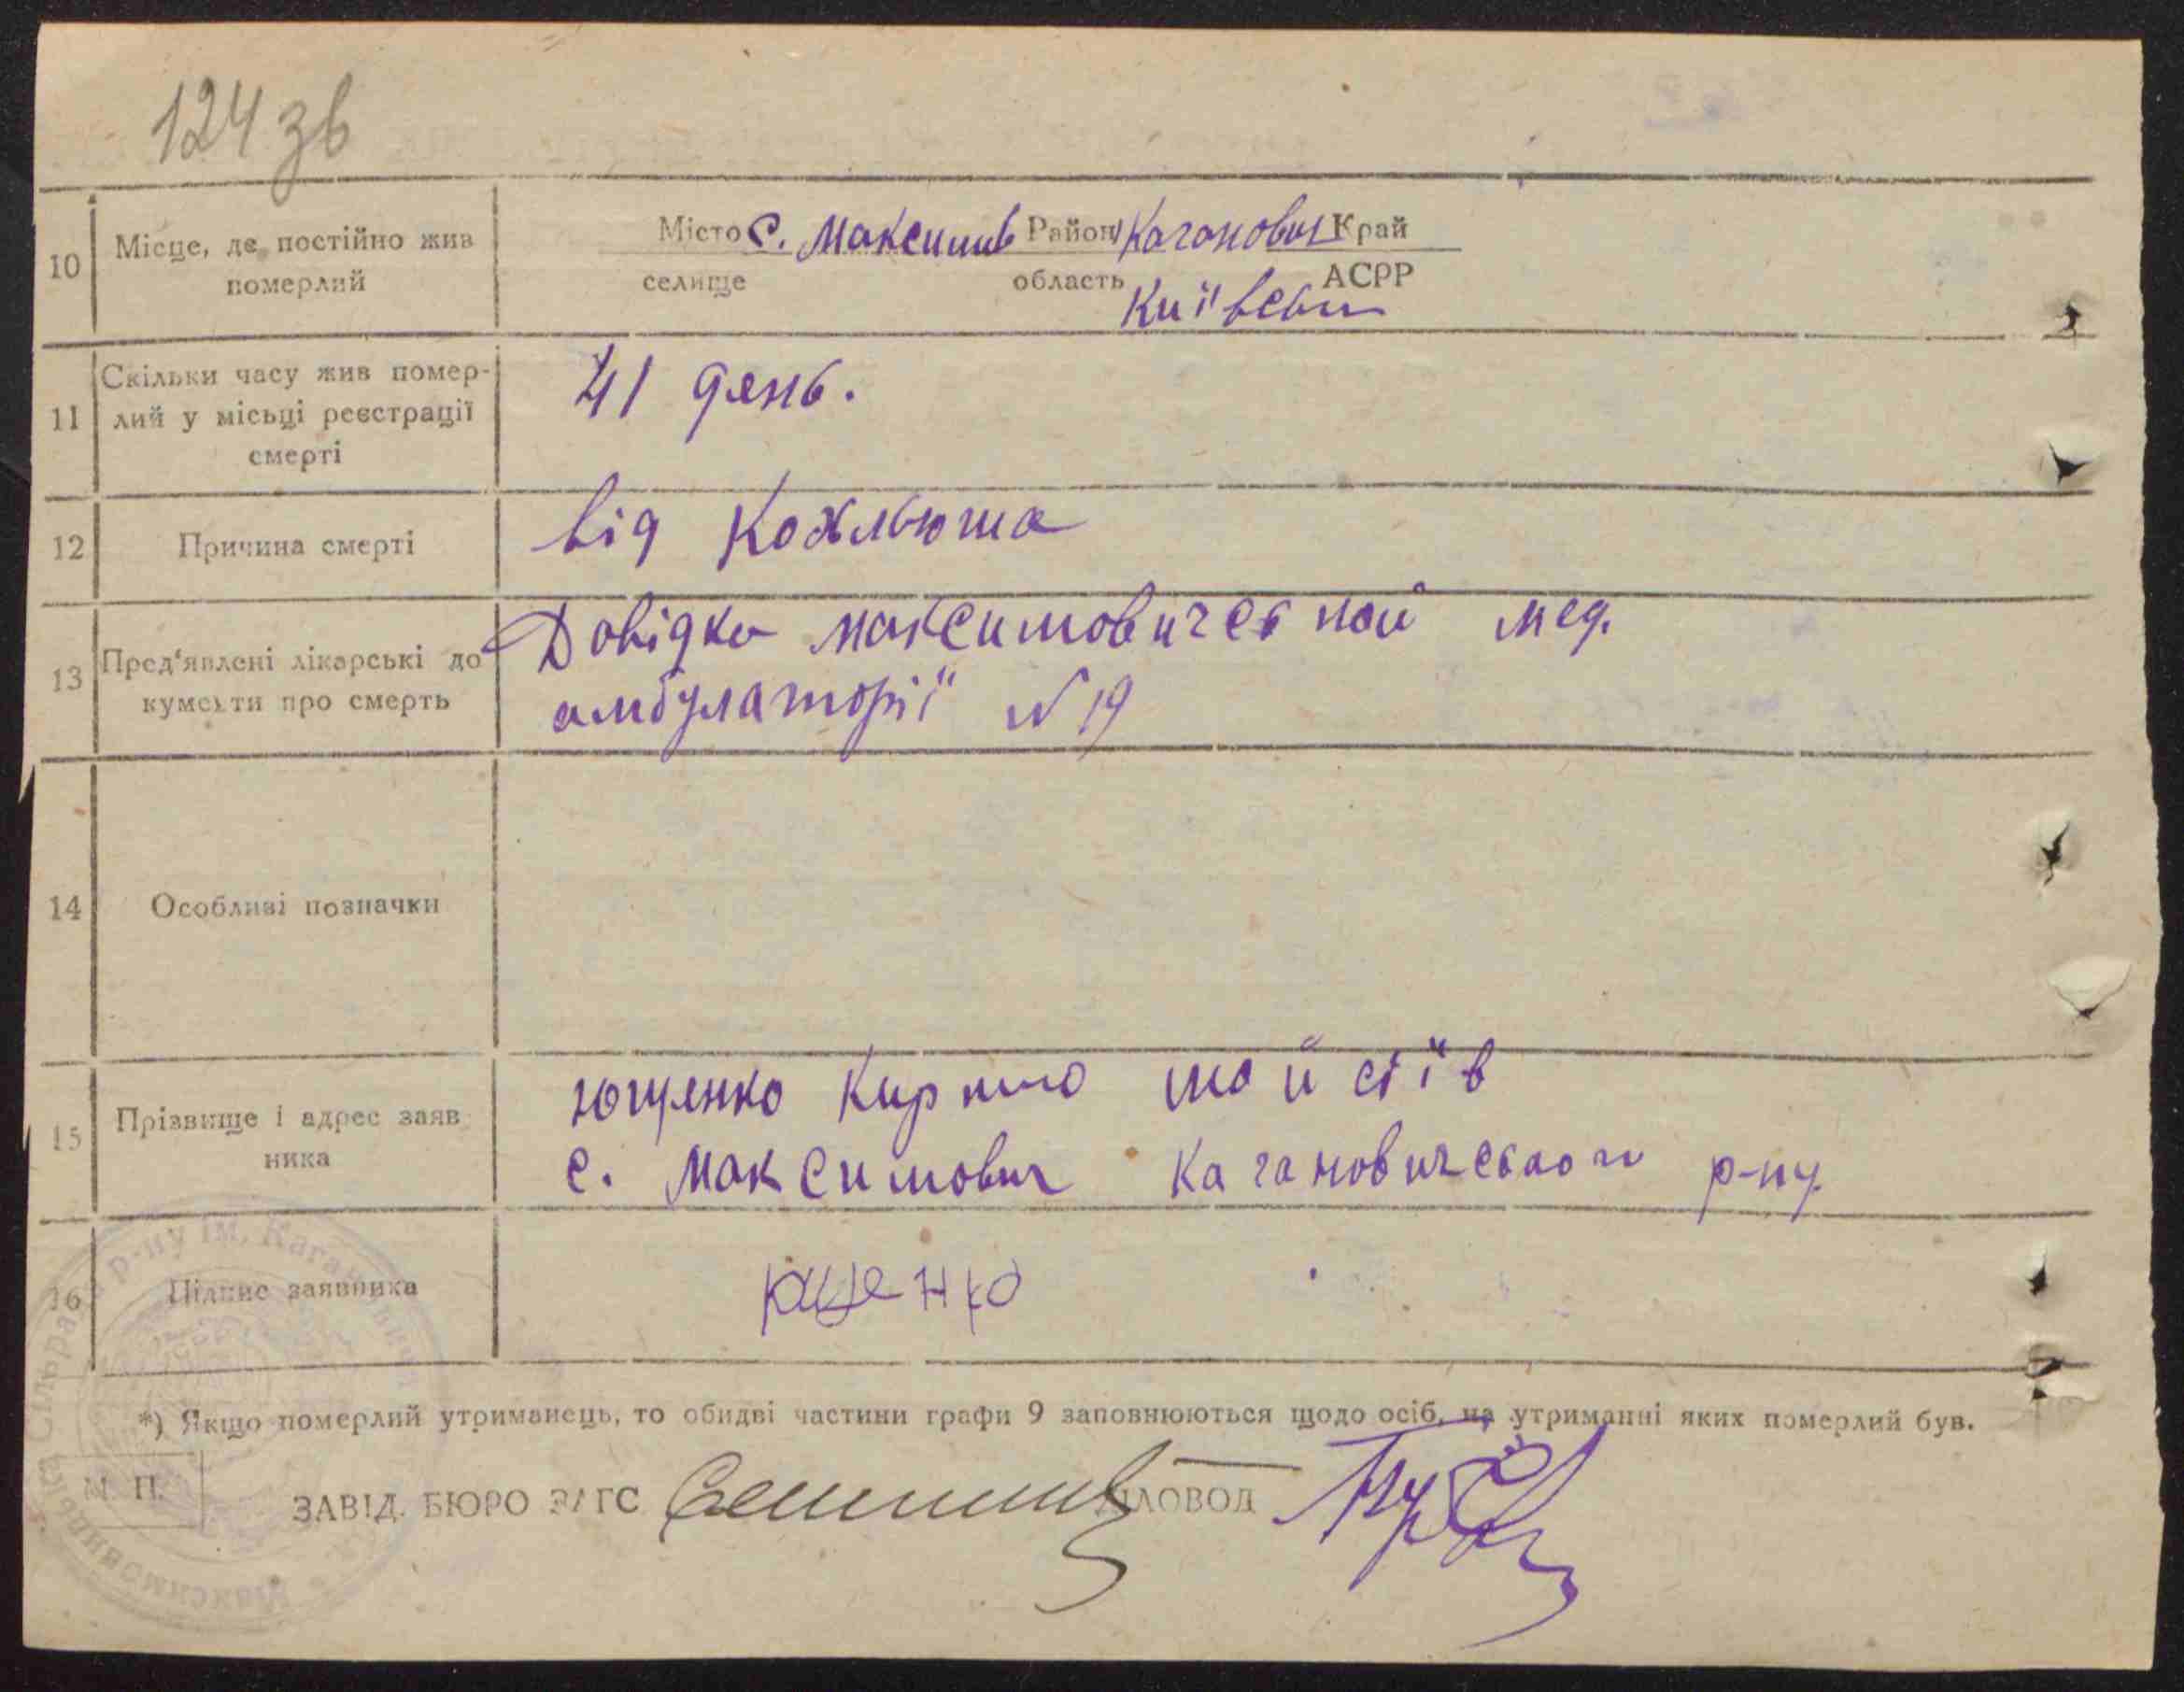 124 зв
10 Місце, де постійно жив померлий
Місто с. Максимов Район Каганович Край
селище область АСРР
Київськ
11 Скільки часу жив помер-
лий у місьці реєстрації
смерті
41 день.
12 Причина смерті
від Кожлюша
13 Пред'явлені лікарські до
кументи про смерть
Довідка максимовической мед.
амбулаторії N 19
14 Особливі позначки
15 Прізвище і адрес заяв
ника
Ющенко Кирило
с. Максимович Кагановического р-ну.
16 Підпис заявника
Ющенко
*) Якщо померлий утриманець, то обидві частини графи 9 заповнюються щодо осіб, на утриманні яких померлий був.
М. П.
ЗАВІД. БЮРО ЗАГС ДІЛОВОД
р-ну ім. Кагановича